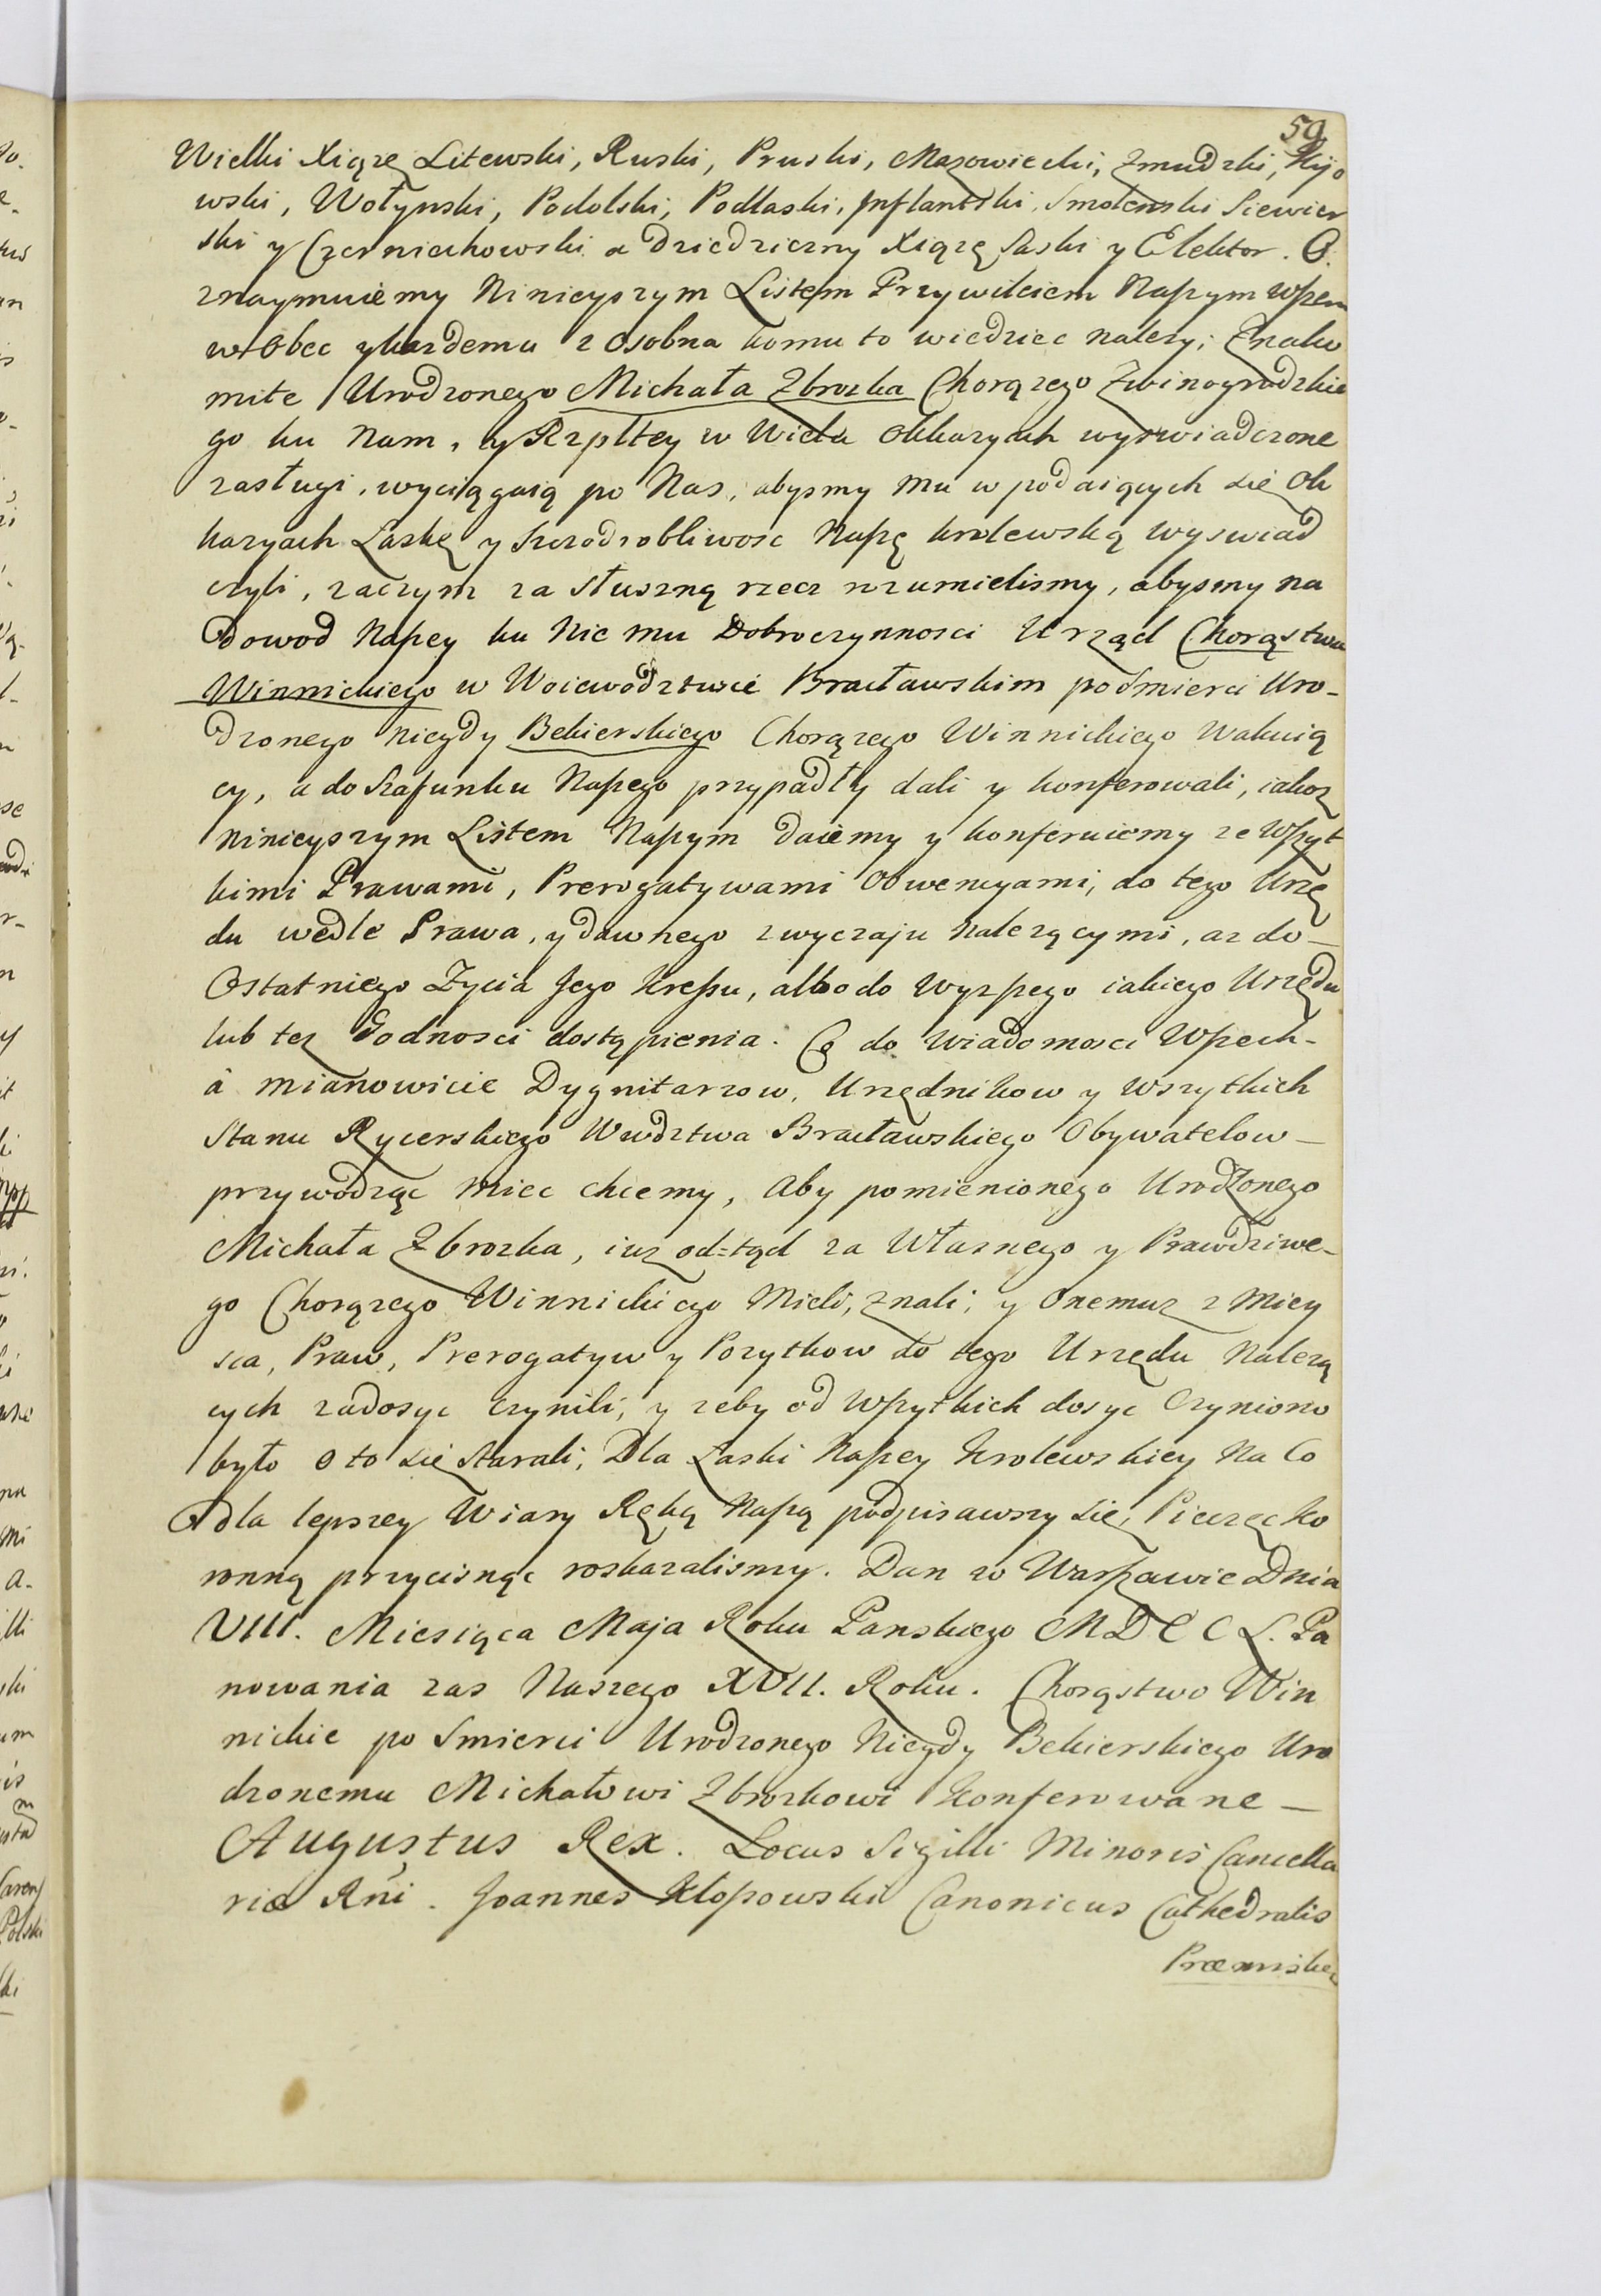 59
Wielki Xiąze Litewski, Ruski, Pruski, Mazowiecki, Zmudzki, Kijo
wski, Wołynski, Podolski, Podlaski, Inflantski, Smolenski Siewier
ski y Czerniechowski a Dziedziczny Xiązę Saski y Elektor. O.
znaymuiemy Ninieyszym Listem Przywileiem Naszym wszem
w obec y każdemu z osobna komu to wiedziec nalezy; Znako
mite Urodzonego Michała Zbrozka Chorązego Zwinogrodzkie
go ku Nam, y Rzpltey w Wielu okkazyach wyswiadczone
zasługi, wyciągaią po Nas, abysmy mu w podaiących się Ok
kazyach Łaskę y szczodrobliwosc Naszę krolewską wyswiad
czyli, zaczym za słuszną rzecz rozumielismy, abysmy na
Dowod Naszey ku Nie mu Dobroczynnosci Urząd Chorąstwa
Winnickiego w Woiewodztwie Bracławskim po smierci Uro-
dzonego niegdy Bekierskiego Chorązego Winnickiego Wakuią
cy, a do Szafunku Naszego przypadły dali y konferowali, iakoz
ninieyszym Listem Naszym daiemy y konferuiemy ze Wszyt
kimi Prawami, Prerogatywami Obwencyami, do tego Urzę
du wedle Prawa, y dawnego zwyczaju Nalezącymi, az do-
Ostatniego Zycia Jego kresu, albo do Wyzszego iakiego Urzędu
lub tez Godnosci dostąpienia. Co do Wiadomosci Wszech-
á mianowicie Dygnitarzow, Urzędnikow y Wszytkich
Stanu Rycerskiego Wwdztwa Bracławskiego Obywatelow-
przywodząc miec chcemy, Aby pomienionego Urodzonego
Michała Zbrozka, iuz od=tąd za Własnego y Prawdziwe-
go Chorązego Winnickiego Mieli, znali, y Onemuz z Miey
sca, Praw, Prerogatyw y Pozytkow do tego Urzędu Nalezą
cych zadosyc czynili, y zeby od Wszytkich dosyc Czyniono
było o to się starali, Dla Łaski Naszey krolewskiey Na Co
dla lepszey Wiary Ręką Naszą podpisawszy się, Pieczęc ko
ronną przycisnąc roskazalismy. Dan w Warszawie Dnia
VIII. Miesiąca Maja Roku Panskiego MDCCL. Pa
nowania zas Naszego XVII. Roku. Chorąstwo Win
nickie po Smierci Urodzonego Niegdy Bekierskiego Uro
dzonemu Michałowi Zbrozkowi konferowane-
Augustus Rex. Locus Sigilli Minoris Cancella
riæ Rni. Joannes Kłopowski Canonicus Cathedralis